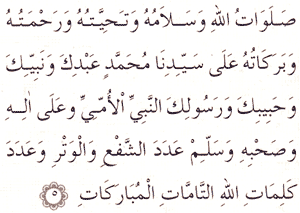 صَلَوَاتُ اللهِ وَسَلَامُهُ وَتَحِيَّتُهُ وَرَحْمَتُهُ
وَبَرَكَاتُهُ عَلَى سَيِّدِنَا مُحَمَّدٍ عَبْدِكَ وَنَبِيِّكَ
وَحَبِيبِكَ وَرَسُولِكَ النَّبِيِّ الْأُمِّيِّ وَعَلَى اٰلِهِ
وَصَحْبِهِ وَسَلِّمْ عَدَدَ الشَّفْعِ وَالْوَتْرِ وَعَدَدَ
كَلِمَاتِ اللهِ التَّامَّاتِ الْمُبَارَكَاتِ ٥